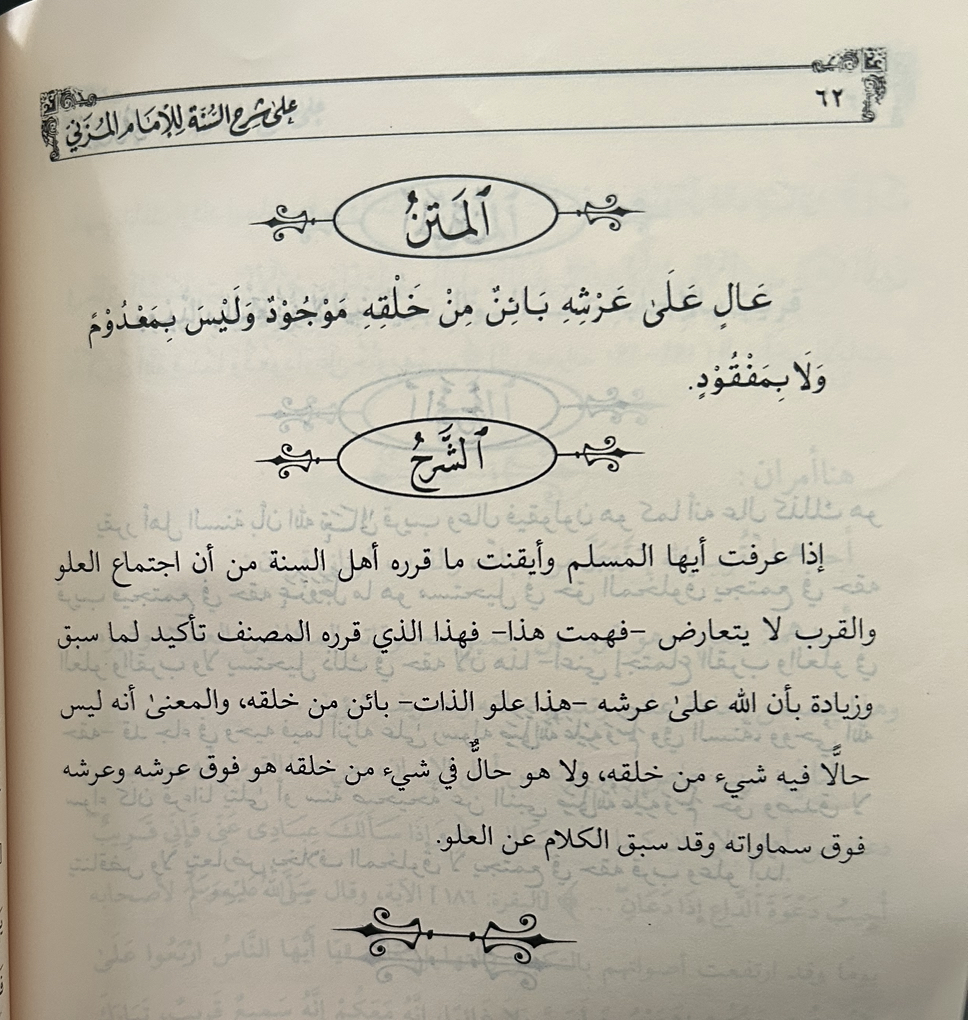 ٦٢
على شرح السُّنَّة للإمَام المُزَني
ٱلمَتنُ
عَالٍ عَلَىٰ عَرْشِهِ بَائِنٌ مِنْ خَلْقِهِ مَوْجُوْدٌ وَلَيْسَ بِمَعْدُوْمٍ
وَلَا بِمَفْقُوْدٍ.
ٱلشَّرحُ
إذا عرفت أيها المسلم وأيقنت ما قرره أهل السنة من أن اجتماع العلو
والقرب لا يتعارض –فهمت هذا– فهذا الذي قرره المصنف تأكيد لما سبق
وزيادة بأن الله علىٰ عرشه –هذا علو الذات– بائن من خلقه، والمعنىٰ أنه ليس
حالًّا فيه شيء من خلقه، ولا هو حالٌّ في شيء من خلقه هو فوق عرشه وعرشه
فوق سماواته وقد سبق الكلام عن العلو.